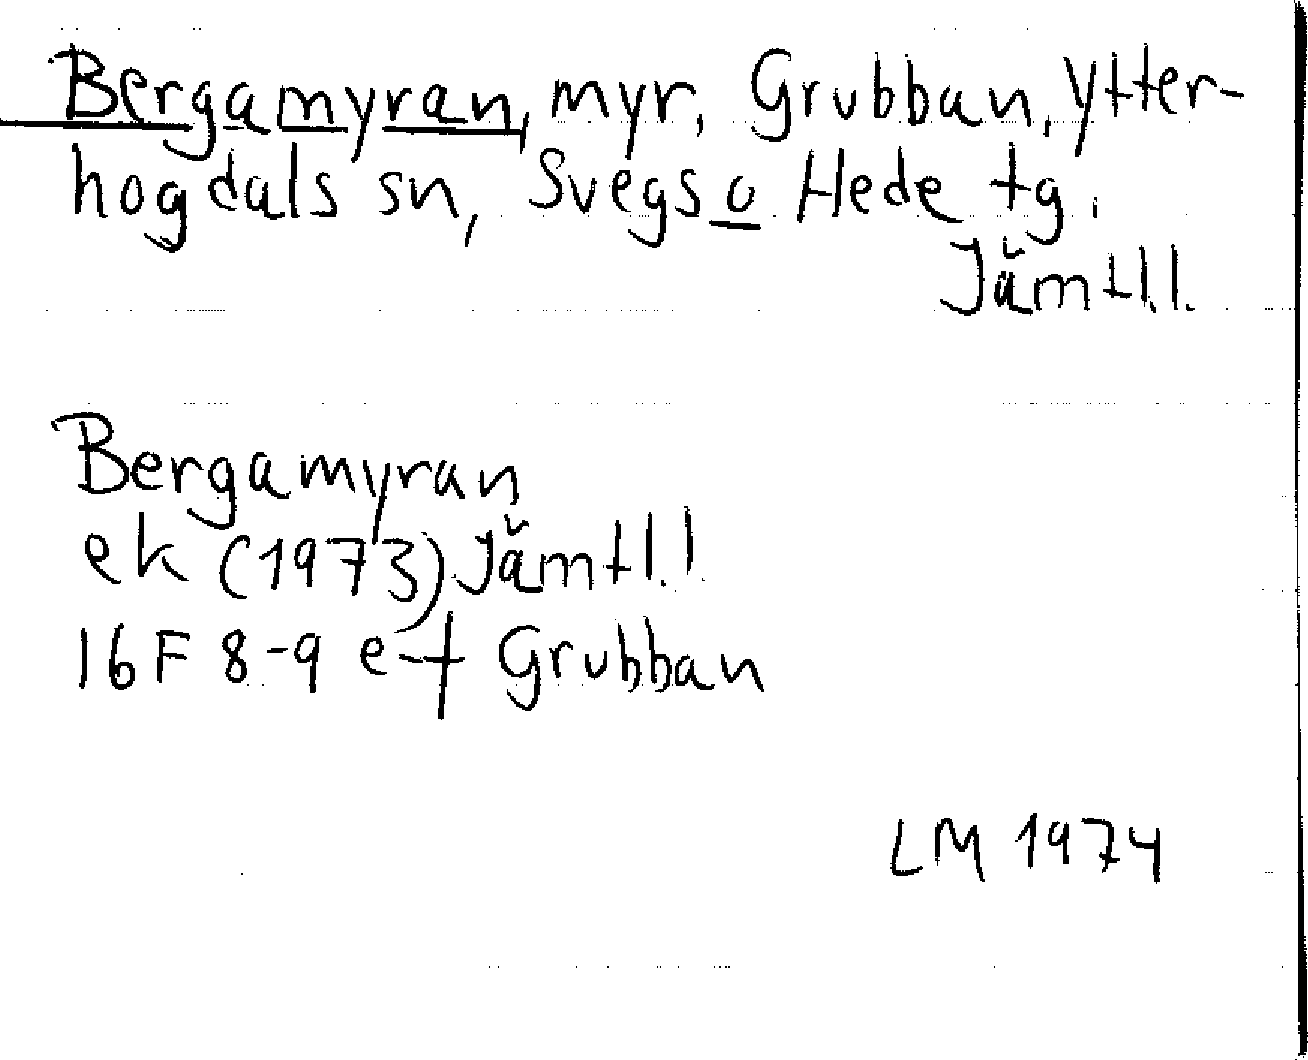 Bergamyran, myr, Grubban, Ytter-
hogdals sn, Svegs o Hede tg.
Jämtl.l.
Bergamyran
ek (1973) Jämtl.l.
16F 8-9 e-f Grubban
LM 1974